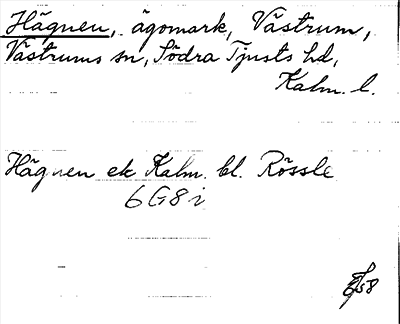 Hägnen, ägomark, Västrum,
Västrums sn, Södra Tjusts hd,
Kalm. l.
Hägnen ek Kalm. bl. Rössle
6G8i